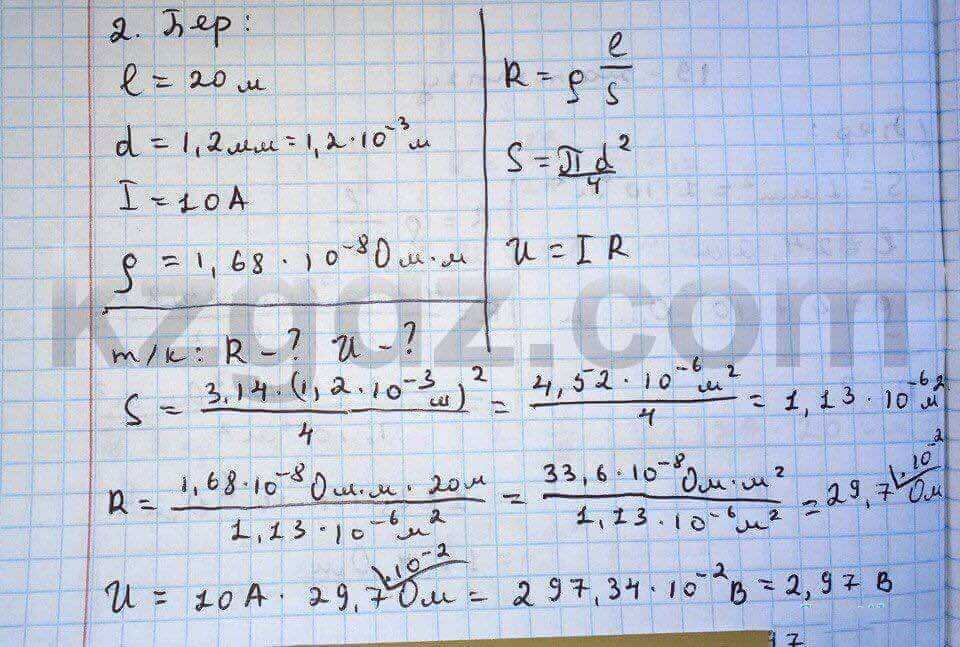 2. Бер:
l = 20 м
d = 1,2 мм = 1,2 · 10⁻³ м
I = 10 А
ρ = 1,68 · 10⁻⁸ Ом · м
т/к: R – ? U – ?
R = ρ l/S
S = πd²/4
U = I R
S = 3,14 · (1,2 · 10⁻³ м)²/4 = 4,52 · 10⁻⁶ м²/4 = 1,13 · 10⁻⁶ м²
R = 1,68 · 10⁻⁸ Ом · м · 20 м/1,13 · 10⁻⁶ м² = 33,6 · 10⁻⁸ Ом · м²/1,13 · 10⁻⁶ м² = 29,7 · 10⁻² Ом
U = 10 А · 29,7 · 10⁻² Ом = 297,34 · 10⁻² В = 2,97 В
17
kzgdz.com